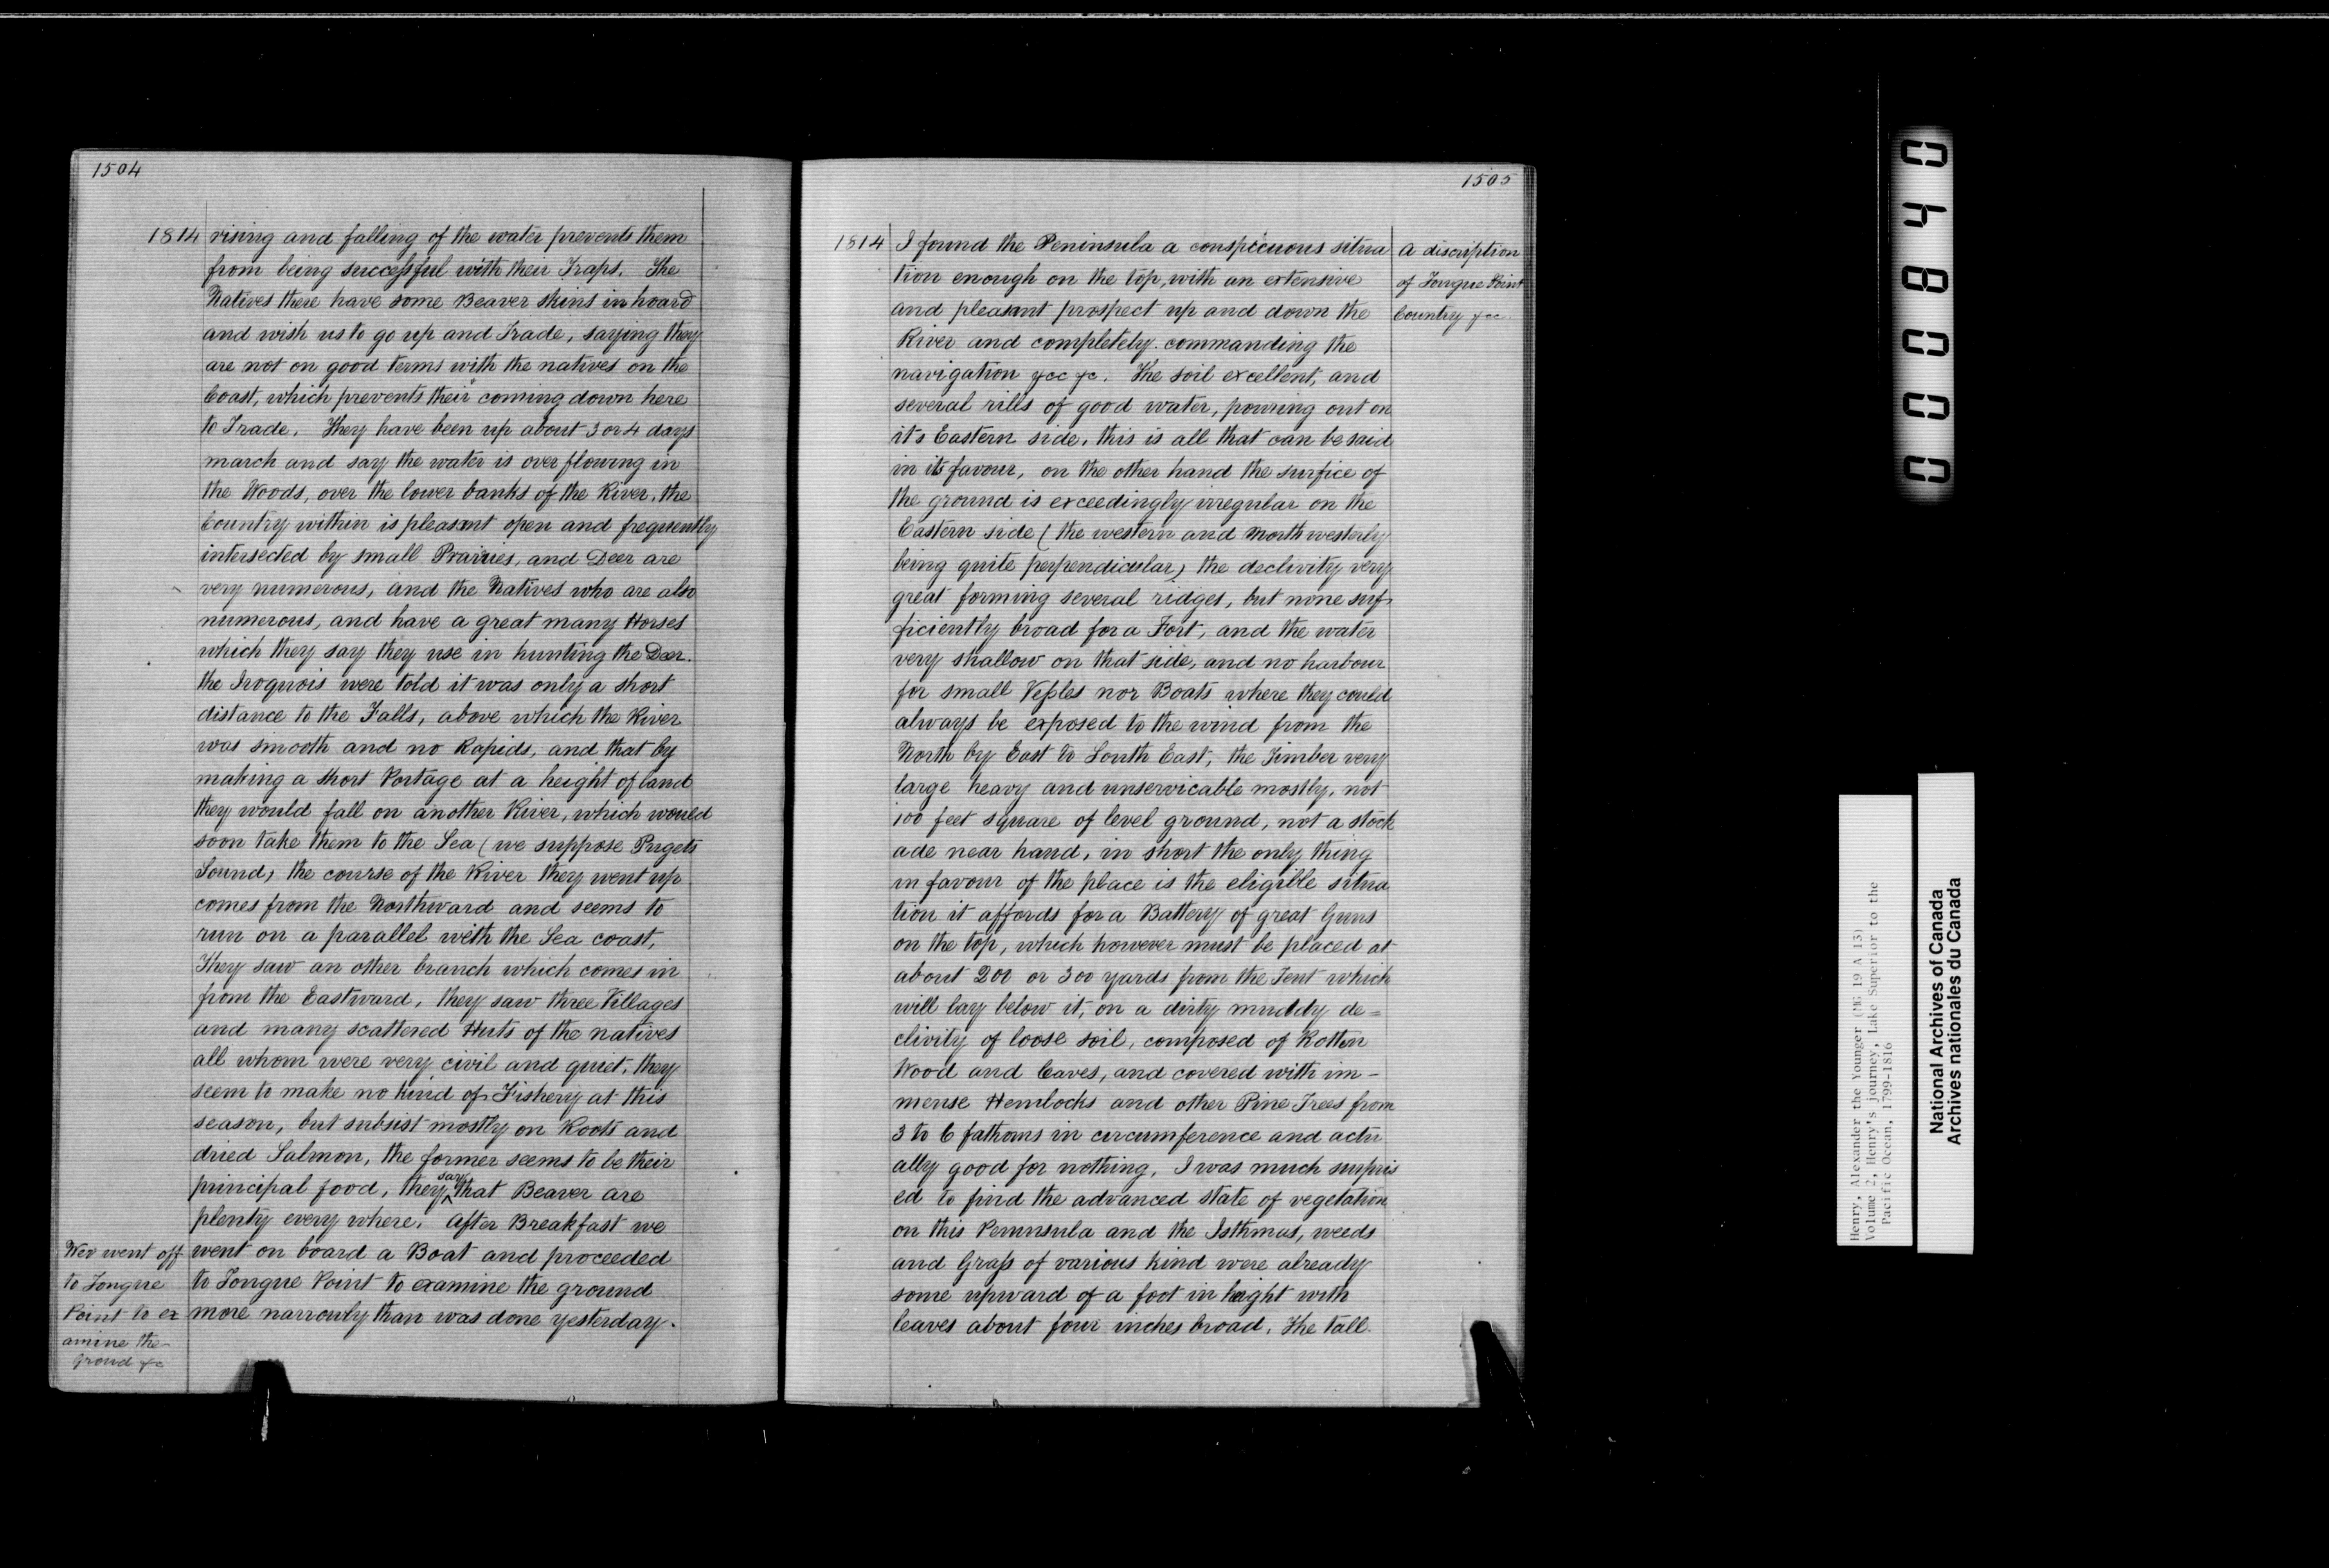 1504
1814 rising and falling of the water prevents them
from being successful with their Traps. The
Natives there have some Beaver skins in hoard
and wish us to go up and Trade, saying they
are not on good terms with the natives on the
Coast, which prevents their coming down here
to Trade. They have been up about 3 or 4 days
march and say the water is over flowing in
the Woods, over the lower banks of the River, the
Country within is pleasant open and frequently
intersected by small Prairies, and Deer are
very numerous, and the Natives who are also
numerous, and have a great many Horses
which they say they use in hunting the Deer.
the Iroquois were told it was only a short
distance to the Falls, above which the River
was smooth and no Rapids, and that by
making a short Portage at a height of land
they would fall on another River, which would
soon take them to the Sea (we suppose Pugets
Sound) the course of the River they went up
comes from the Northward and seems to
run on a parallel with the Sea coast,
They saw an other branch which comes in
from the Eastward, they saw three Villages
and many scattered Huts of the natives
all whom were very civil and quiet, they
seem to make no kind of Fishery at this
season, but subsist mostly on Roots and
dried Salmon, the former seems to be their
principal food, they say that Beaver are
plenty every where. After Breakfast we
went on board a Boat and proceeded
to Tongue Point to examine the ground
more narrowly than was done yesterday.
Wee went off
to Tongue
Point to ex
amine the
groud &c
1505
1814 I found the Peninsula a conspicuous situa
tion enough on the top, with an extensive
and pleasant prospect up and down the
River and completely commanding the
navigation &cc &c. The soil excellent, and
several rills of good water, pouring out on
it's Eastern side, this is all that can be said
in its favour, on the other hand the surfice of
the ground is exceedingly irregular on the
Eastern side (the western and North westerly
being quite perpendicular) the declivity very
great forming several ridges, but none suf
ficiently broad for a Fort, and the water
very shallow on that side, and no harbour
for small Vessles nor Boats where they could
always be exposed to the wind from the
North by East to South East, the Timber very
large heavy and unservicable mostly, not
100 feet square of level ground, not a stock
ade near hand, in short the only thing
in favour of the place is the eligible situa
tion it affords for a Battery of great Guns
on the top, which however must be placed at
about 200 or 300 yards from the Tent which
will lay below it, on a dirty muddy de=
clivity of loose soil, composed of Rotten
Wood and Leaves, and covered with im-
mense Hemlocks and other Pine Trees from
3 to 6 fathoms in circumference and actu
ally good for nothing, I was much surpris
ed to find the advanced state of vegetation
on this Peninsula and the Isthmus, weeds
and Grass of various kind were already
some upward of a foot in height with
leaves about four inches broad, The tall
A discription
of Tongue Point
Country &cc.
000840
Henry, Alexander the Younger (MG 19 A 13)
Volume 2, Henry's journey, Lake Superior to the
Pacific Ocean, 1799-1816
National Archives of Canada
Archives nationales du Canada